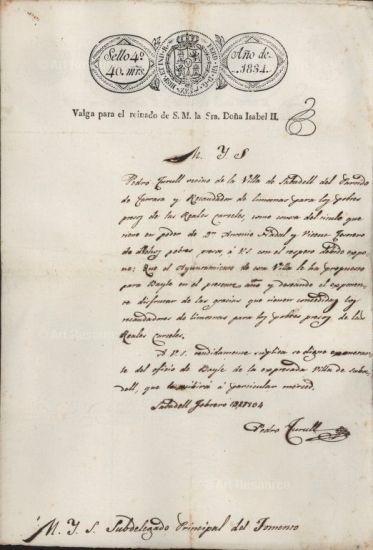 Sello 4º
40. mrs.
Año de
1834.
Valga para el reinado de S. M. la Sra. Doña Isabel II.
M. Y S
Pedro Turull vecino de la Villa de Sabadell del Partido
de Tarrasa y Recaudador de limosnas para los pobres
presos de las Reales carceles, como consta del titulo que
tiene en poder de Dn Antonio y Vicente
pobres preso, á V.S. con el respeto debido expo
ne: Que el Ayuntamiento de esta Villa le ha propuesto
para Bayle en el presente año y deseando el exponen
te disfrutar de las gracias que tienen concedidas los
recaudadores de limosnas para los pobres presos de las
Reales carceles.
A V.S. rendidamente suplica se digne exonerar
le del oficio de Bayle de la expresada Villa de Saba
dell, que lo recibirá á particular merced.
Sabadell Febrero
Pedro Turull
M. Y. S. Subdelegado Principal del Fomento